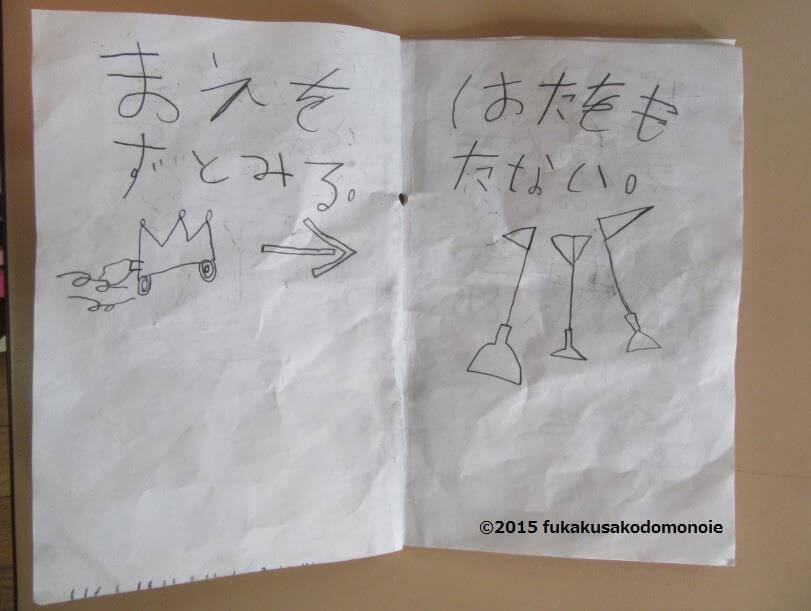 まえを
ずとみる。
はたをも
たない。
©2015 fukakusakodomonoie